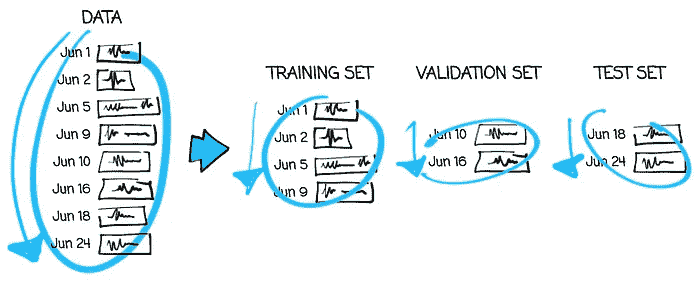 DATA
Jun 1
Jun 2
Jun 5
Jun 9
Jun 10
Jun 16
Jun 18
Jun 24
TRAINING SET
Jun 1
Jun 2
Jun 5
Jun 9
VALIDATION SET
Jun 10
Jun 16
TEST SET
Jun 18
Jun 24